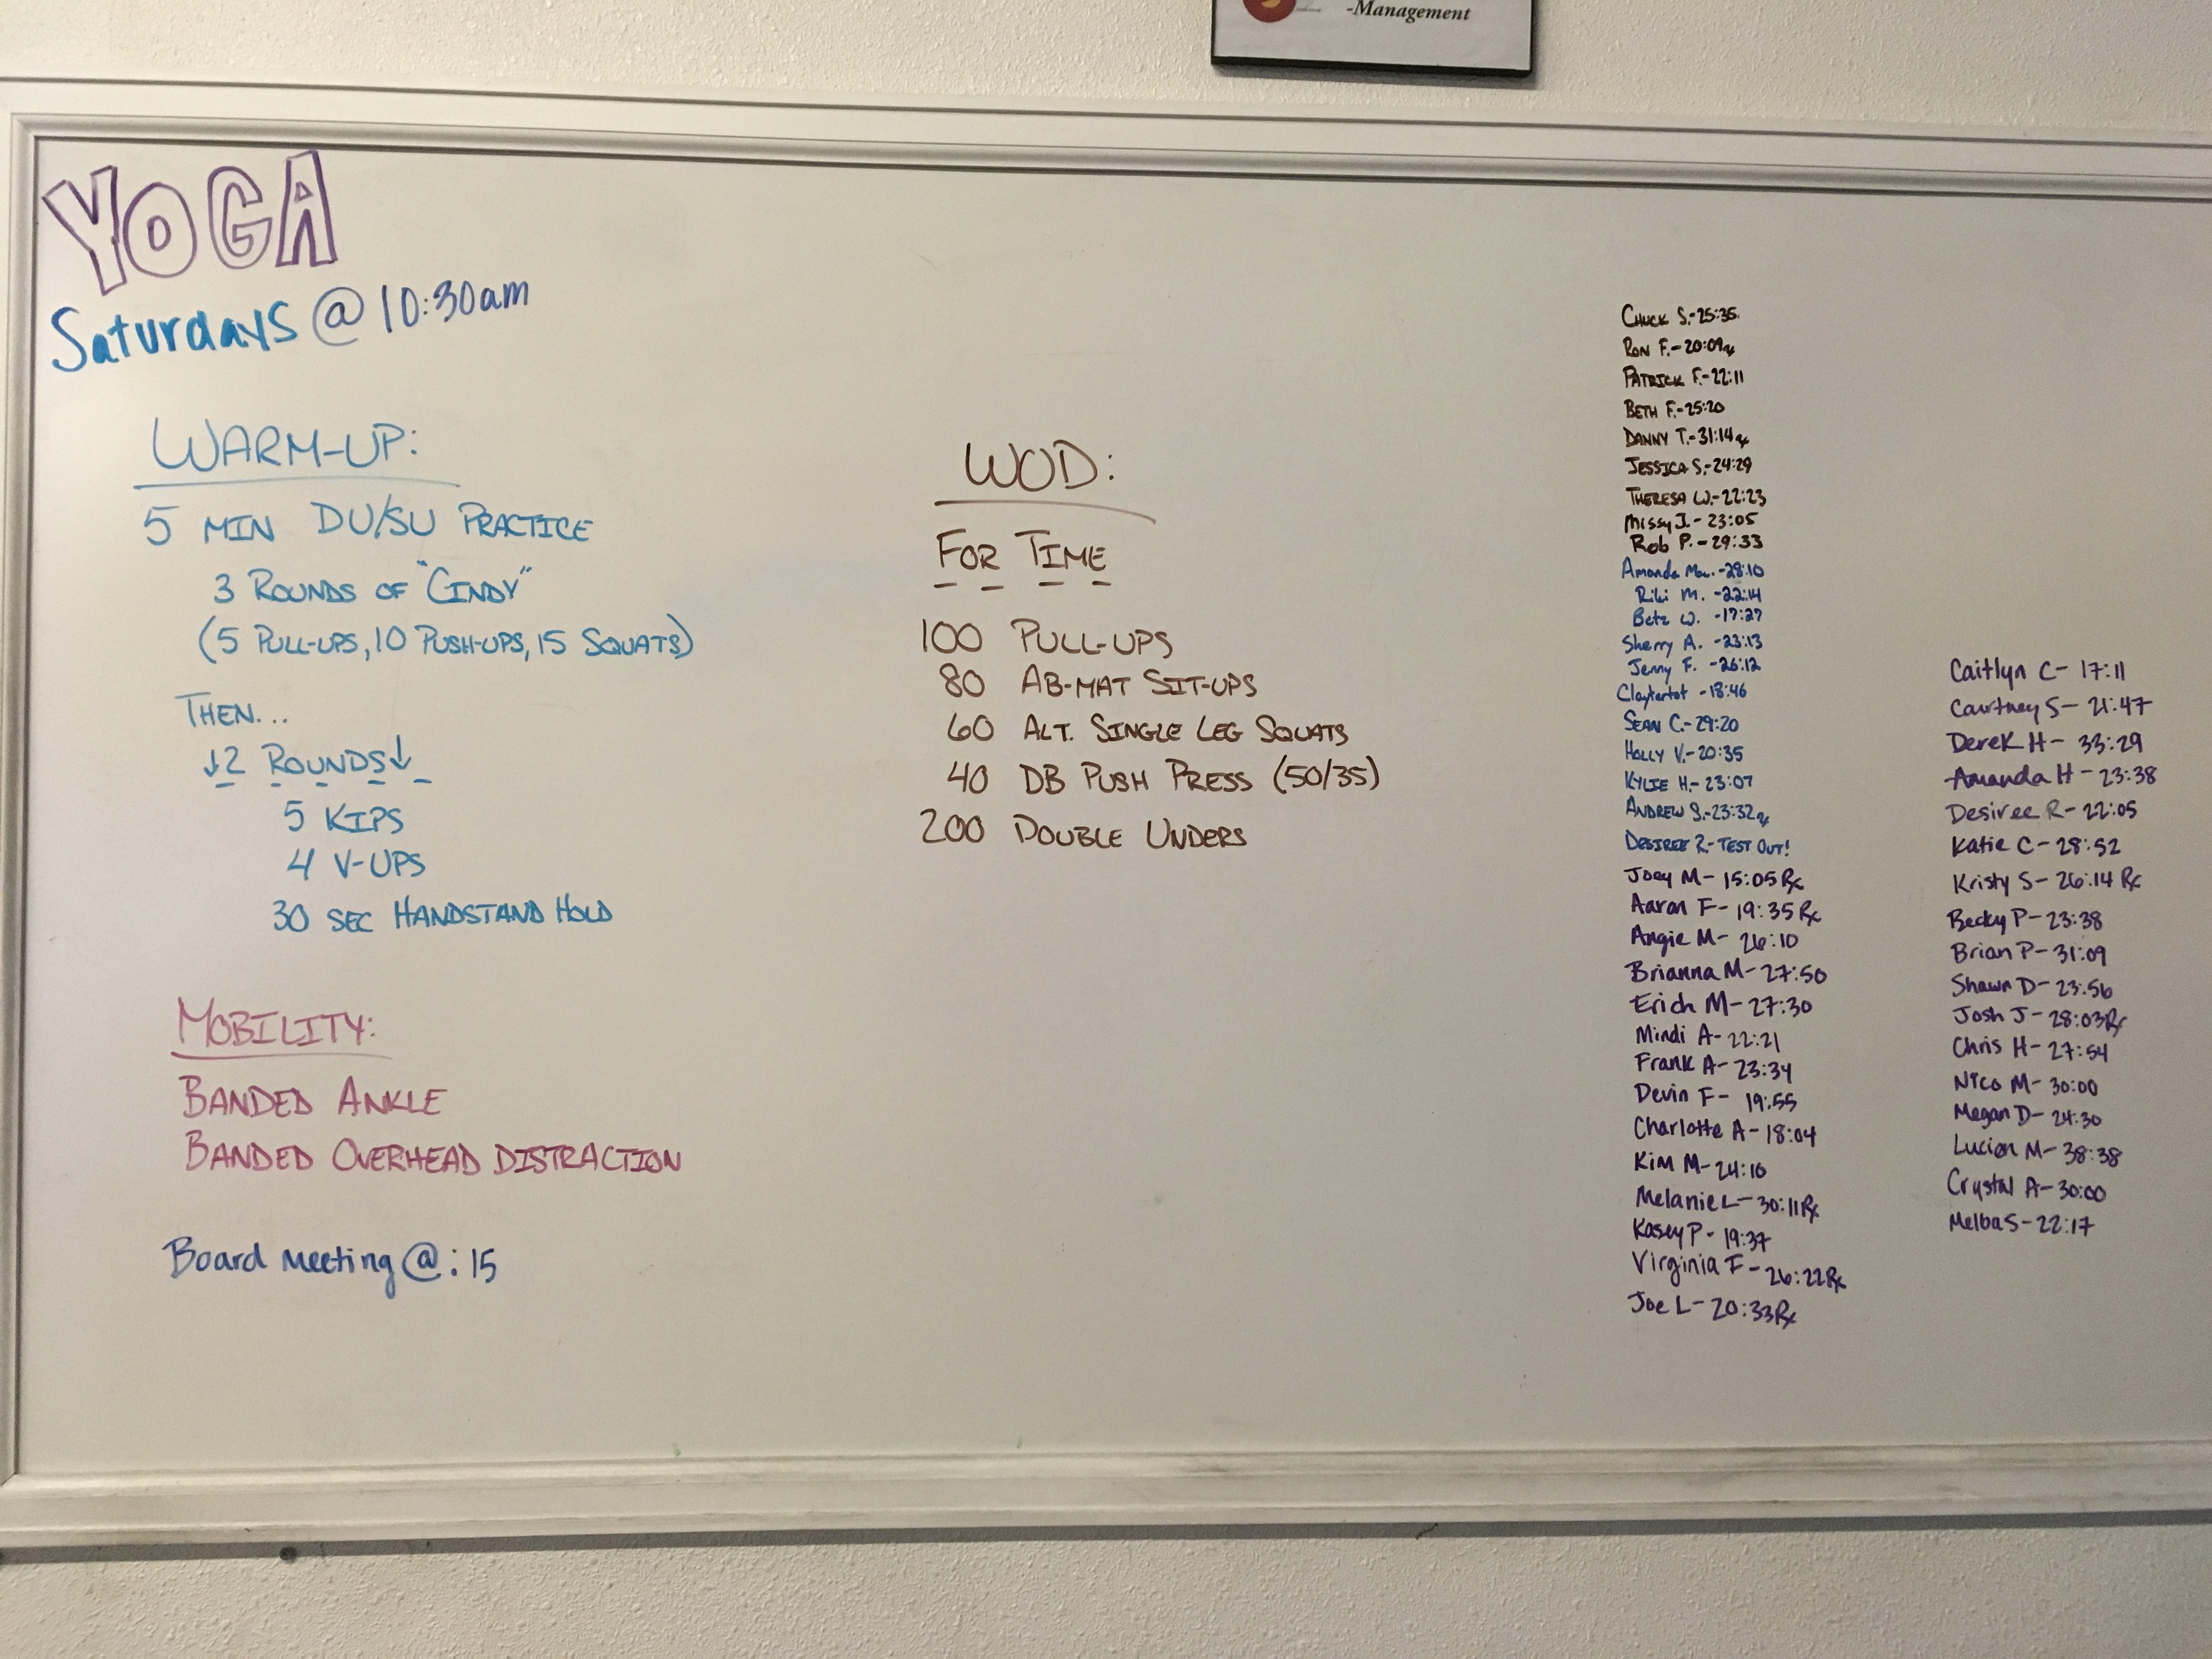 -Management
YOGA
Saturdays @ 10:30am
WARM-UP:
5 MIN DU/SU PRACTICE
3 ROUNDS OF "CINDY"
(5 PULL-UPS, 10 PUSH-UPS, 15 SQUATS)
THEN...
↓2 ROUNDS↓
5 KIPS
4 V-UPS
30 SEC HANDSTAND HOLD
MOBILITY:
BANDED ANKLE
BANDED OVERHEAD DISTRACTION
Board Meeting @ :15
WOD:
FOR TIME
100 PULL-UPS
80 AB-MAT SIT-UPS
60 ALT. SINGLE LEG SQUATS
40 DB PUSH PRESS (50/35)
200 DOUBLE UNDERS
CHUCK S.-25:35
RON F.-20:09 Rx
PATRICK F.-22:11
BETH F.-25:20
DANNY T.-31:14 Rx
JESSICA S.-24:29
THERESA W.-22:23
Missy J.- 23:05
Rob P.- 29:33
Amanda -28:10
Riki M. -22:14
Betz W. -17:27
Sherry A. -23:13
Jenny F. -26:12
Claytertot -18:46
SEAN C.-29:20
HOLLY V.-20:35
KYLIE H.-23:07
ANDREW S.-23:32 Rx
DESIREE R.-TEST OUT!
Joey M- 15:05 Rx
Aaron F- 19:35 Rx
Angie M- 26:10
Brianna M- 27:50
Erich M- 27:30
Mindi A- 22:21
Frank A- 23:34
Devin F- 19:55
Charlotte A- 18:04
Kim M- 24:10
Melanie L- 30:11 Rx
Kasey P- 19:37
Virginia F- 26:22 Rx
Joe L- 20:33 Rx
Caitlyn C- 17:11
Courtney S- 21:47
Derek H- 33:29
Amanda H- 23:38
Desiree R- 22:05
Katie C- 28:52
Kristy S- 26:14 Rx
Becky P- 23:38
Brian P- 31:09
Shawn D- 23:56
Josh J- 28:03 Rx
Chris H- 27:54
Nico M- 30:00
Megan D- 24:30
Lucien M- 38:38
Crystal A- 30:00
Melba S- 22:17